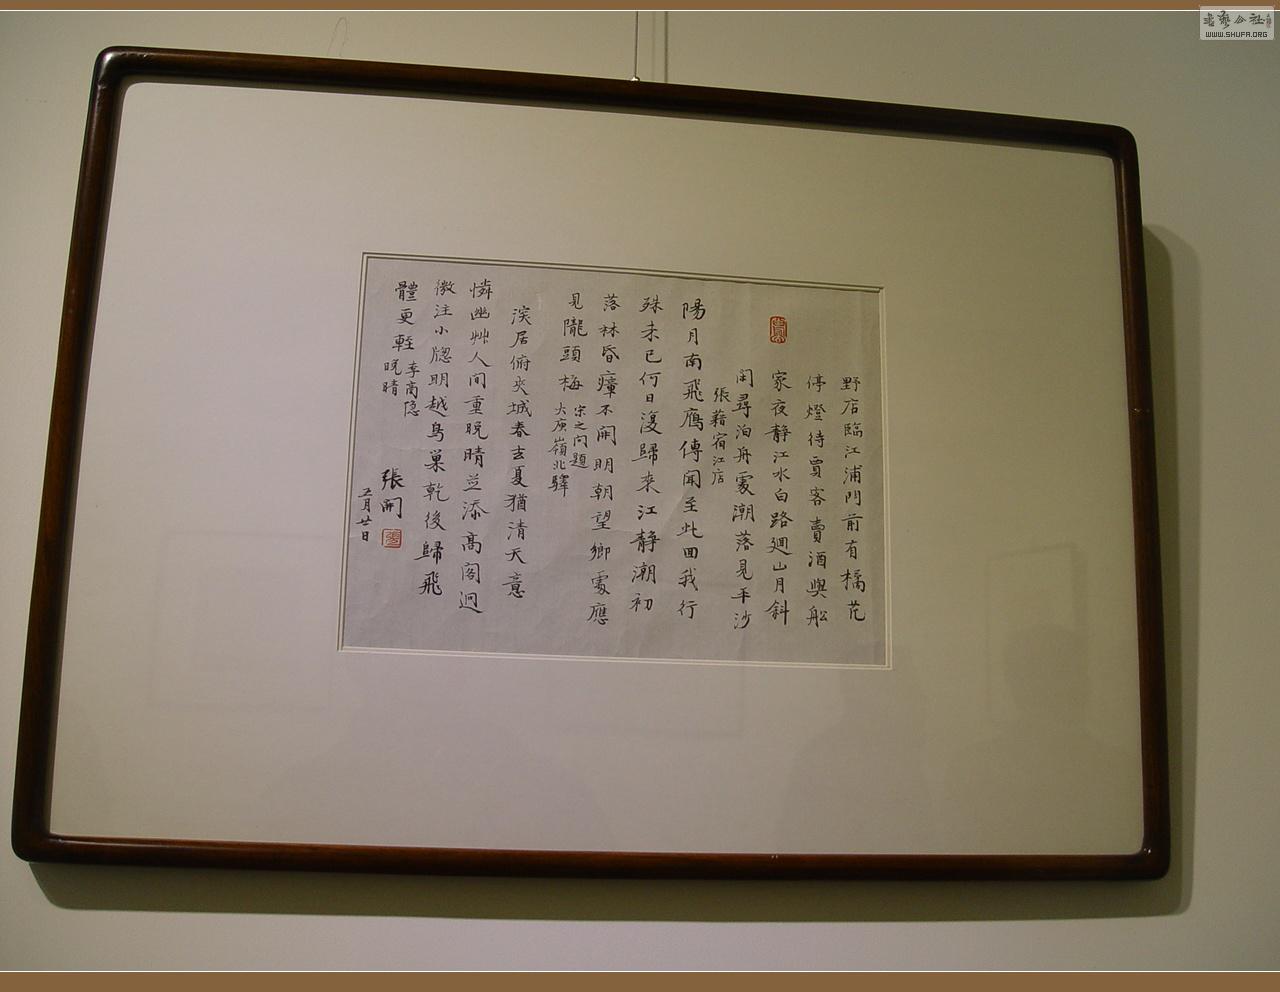 野店臨江浦門前有橘花
停燈待賈客賣酒與船
家夜靜江水白路廻山月斜
闲尋泊舟處潮落見平沙
張籍宿江店
陽月南飛鴈傳聞至此回我行
殊未已何日復歸來江靜潮初
落林昏瘴不開明朝望鄉處應
見隴頭梅
宋之问題
大庾嶺北驛
深居俯夾城春去夏猶清天意
憐幽艸人间重晚晴並添高閣迥
微注小牕明越鳥巢乾後歸飛
體更輕
李商隐
晚晴
張開
五月廿日
書藝公社
WWW.SHUFA.ORG